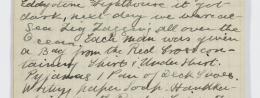 Eddystone Lighthouse it got
dark, next day we were all
Sea Sick Laying all over the
Ocean. Each man was given
a Bag from the Red Cross con-
taining Shirt & Under Shirt.
Pyjamas 1 Pair of Deck Shoes.
Writing paper Soap. Handker-